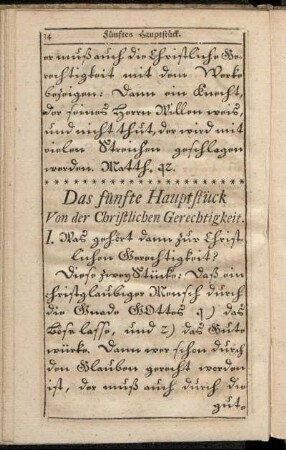 14 Fünftes Hauptstück.
er muß auch die Christliche Ge-
rechtigkeit mit dem Werke
bezeigen: Dann ein Knecht,
der seines Herrn Willen weis,
und nicht thut, der wird mit
vielen Streichen geschlagen
werden. Matth. 42.
Das fünfte Hauptstück
Von der Christlichen Gerechtigkeit.
I. Was gehört dann zur Christ-
lichen Gerechtigkeit?
Diese zwey Stücke: Daß ein
christglaubiger Mensch durch
die Gnade GOttes 1) das
böse lasse, und 2) das Gute
würke. Dann wer schon durch
den Glauben gerecht worden
ist, der muß auch durch die
gute